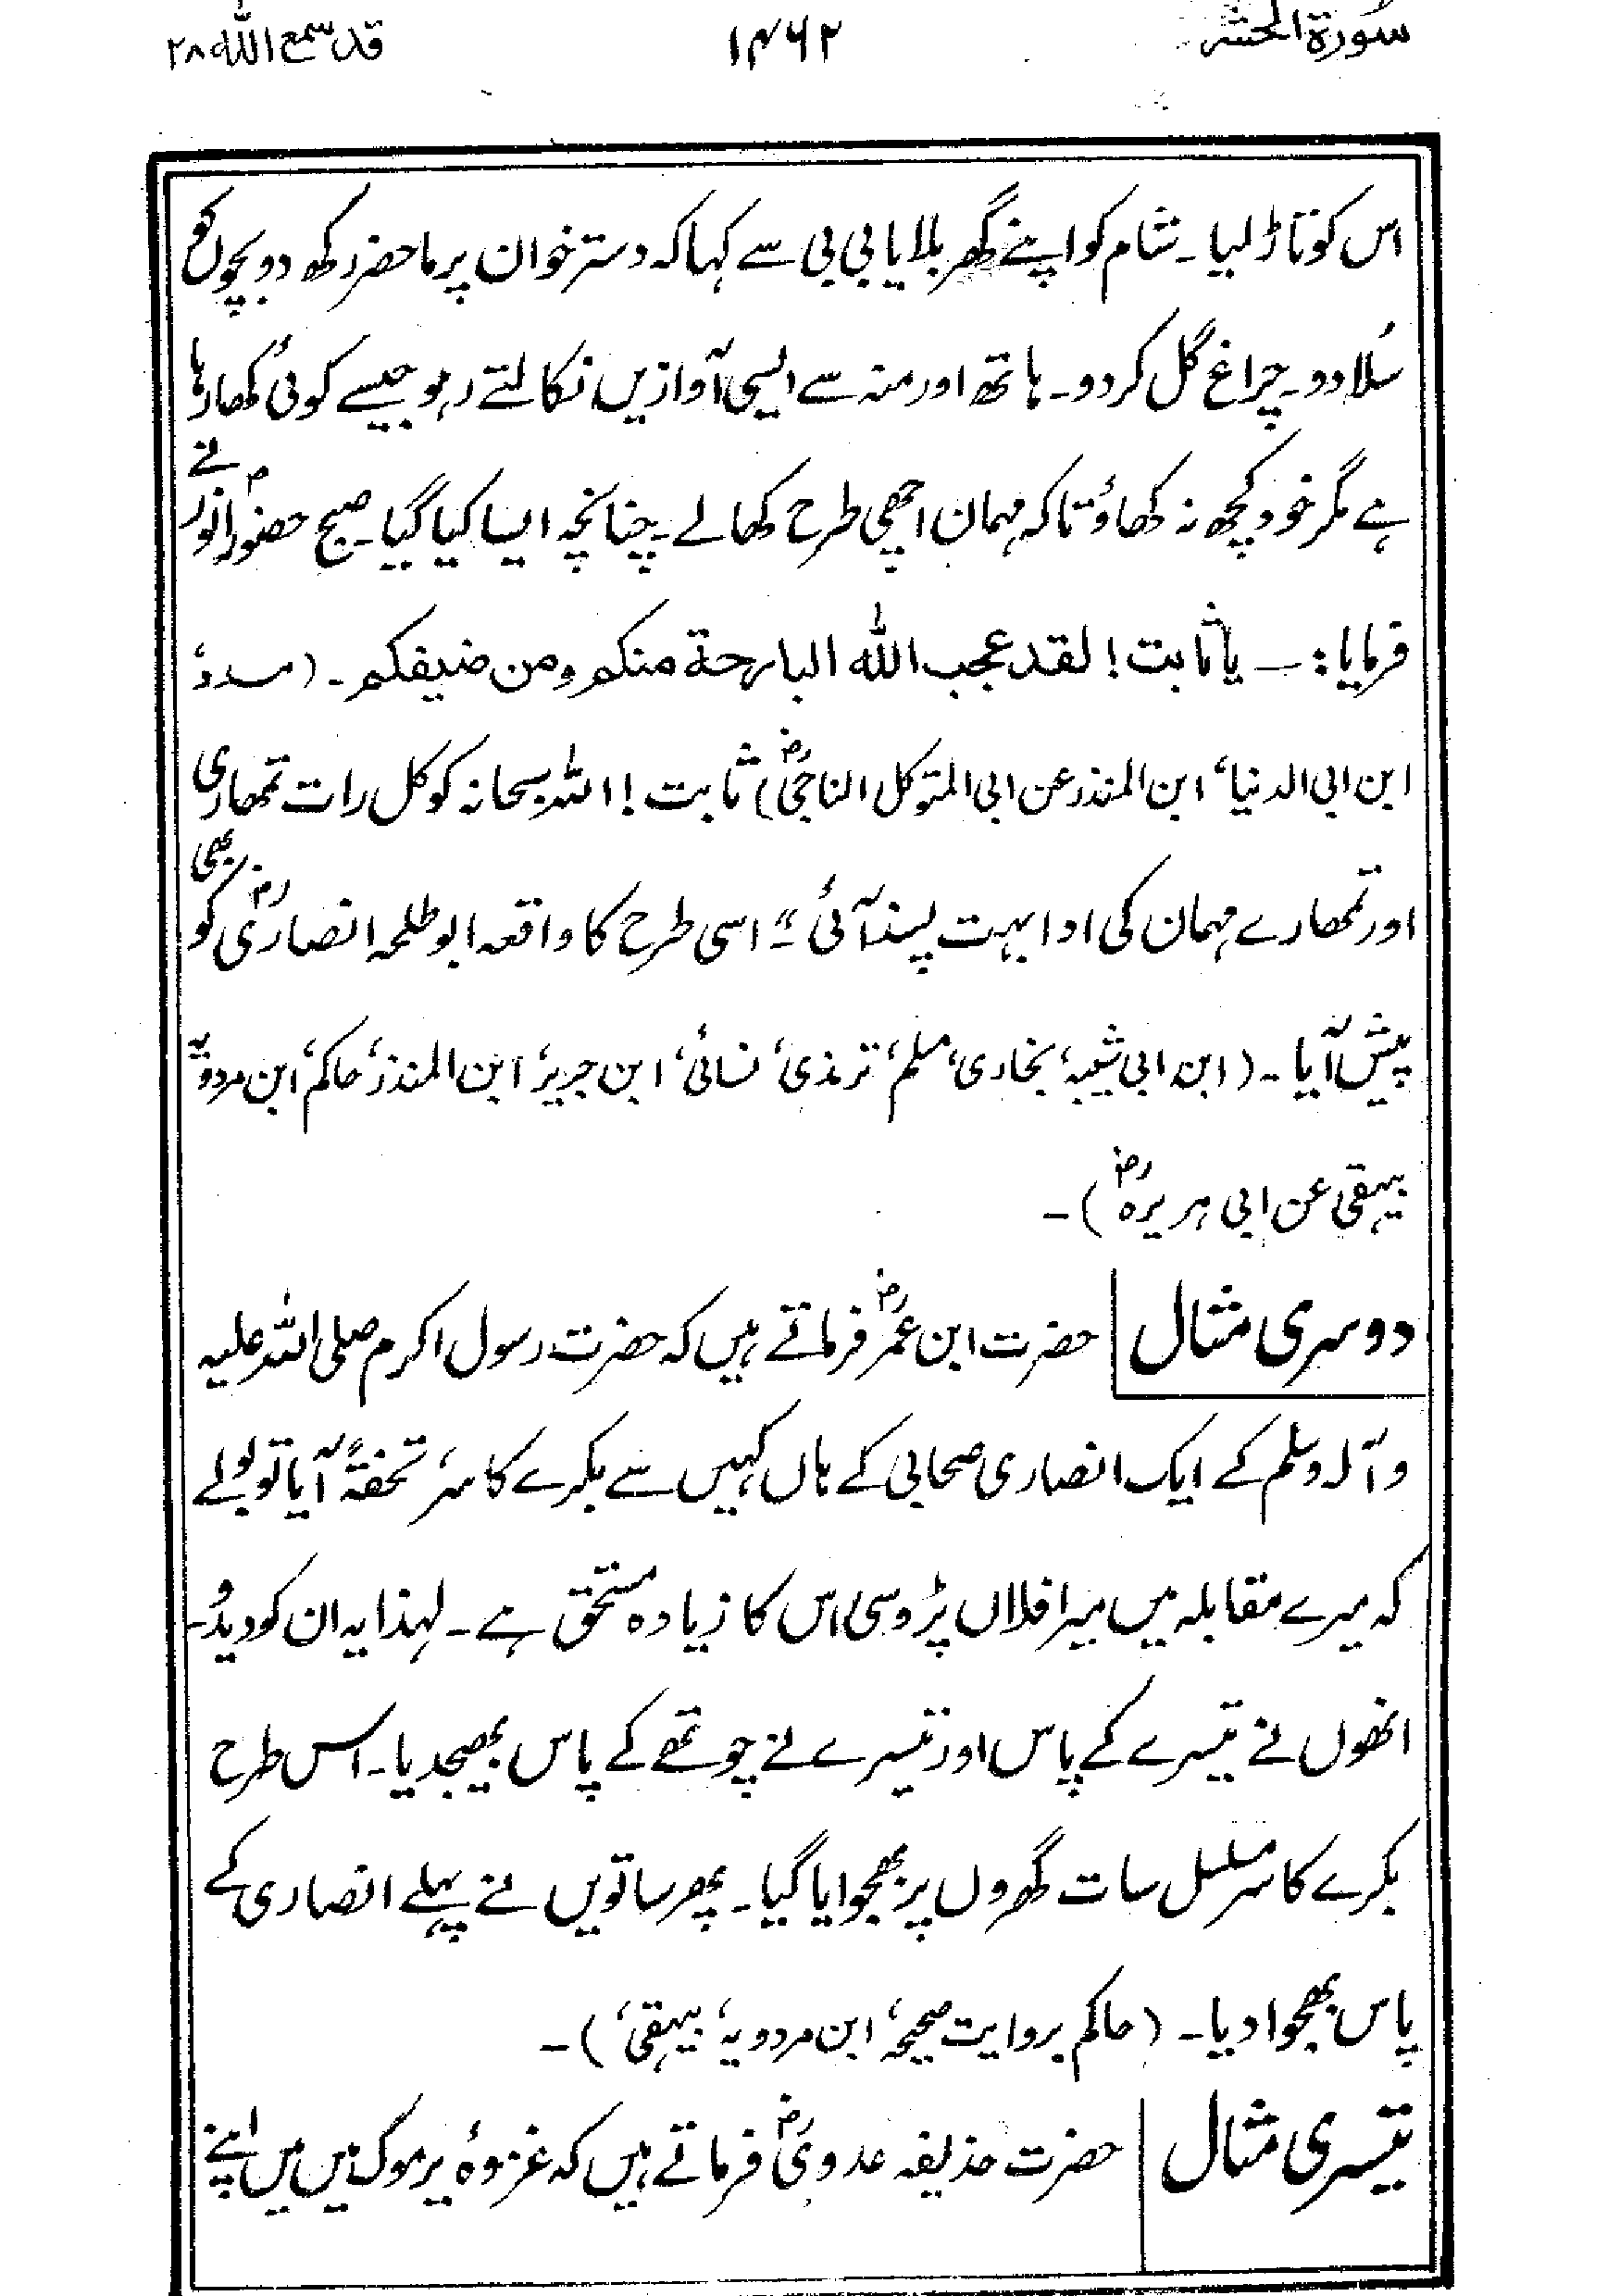 سورة الحشر ۱۴۶۲ قد سمع الله ۲۸
اس کو تاڑ لیا۔ شام کو اپنے گھر بلایا بی بی سے کہا کہ دسترخوان پر ماحضر رکھ دو بچوں کو
سُلا دو۔ چراغ گل کر دو۔ ہاتھ اور منہ سے ایسی آوازیں نکالتے رہو جیسے کوئی کھا رہا
ہے مگر خود کچھ نہ کھاؤ تاکہ مہمان اچھی طرح کھالے۔ چنانچہ ایسا کیا گیا۔ صبح حضور انورؐ نے
فرمایا: ــ یا ثابت! لقد عجب الله البارحة منکم ومن ضیفکم۔ (مسدد،
ابن ابی الدنیا، ابن المنذر عن ابی المتوکل الناجیؓ) ثابت! اللہ سبحانہ کو کل رات تمھاری
اور تمھارے مہمان کی ادا بہت پسند آئی"۔ اسی طرح کا واقعہ ابو طلحہ انصاریؓ کو بھی
پیش آیا۔ (ابن ابی شیبہ، بخاری، مسلم، ترمذی، نسائی، ابن جریر، ابن المنذر، حاکم، ابن مردویہ
بیہقی عن ابی ہریرہؓ)۔
دوسری مثال حضرت ابن عمرؓ فرماتے ہیں کہ حضرت رسول اکرم صلی اللہ علیہ
وآلہ وسلم کے ایک انصاری صحابی کے ہاں کہیں سے بکرے کا سر تحفۃً آیا تو بولے
کہ میرے مقابلہ میں میرا فلاں پڑوسی اس کا زیادہ مستحق ہے۔ لہذا یہ ان کو دیدو۔
انھوں نے تیسرے کے پاس اور تیسرے نے چوتھے کے پاس بھیجدیا۔ اس طرح
بکرے کا سر مسلسل سات گھروں پر بھجوایا گیا۔ پھر ساتویں نے پہلے انصاری کے
پاس بھجوا دیا۔ (حاکم بروایت صحیحہ، ابن مردویہ، بیہقی،)۔
تیسری مثال حضرت حذیفہ عدویؓ فرماتے ہیں کہ غزوۂ یرموک میں میں اپنے